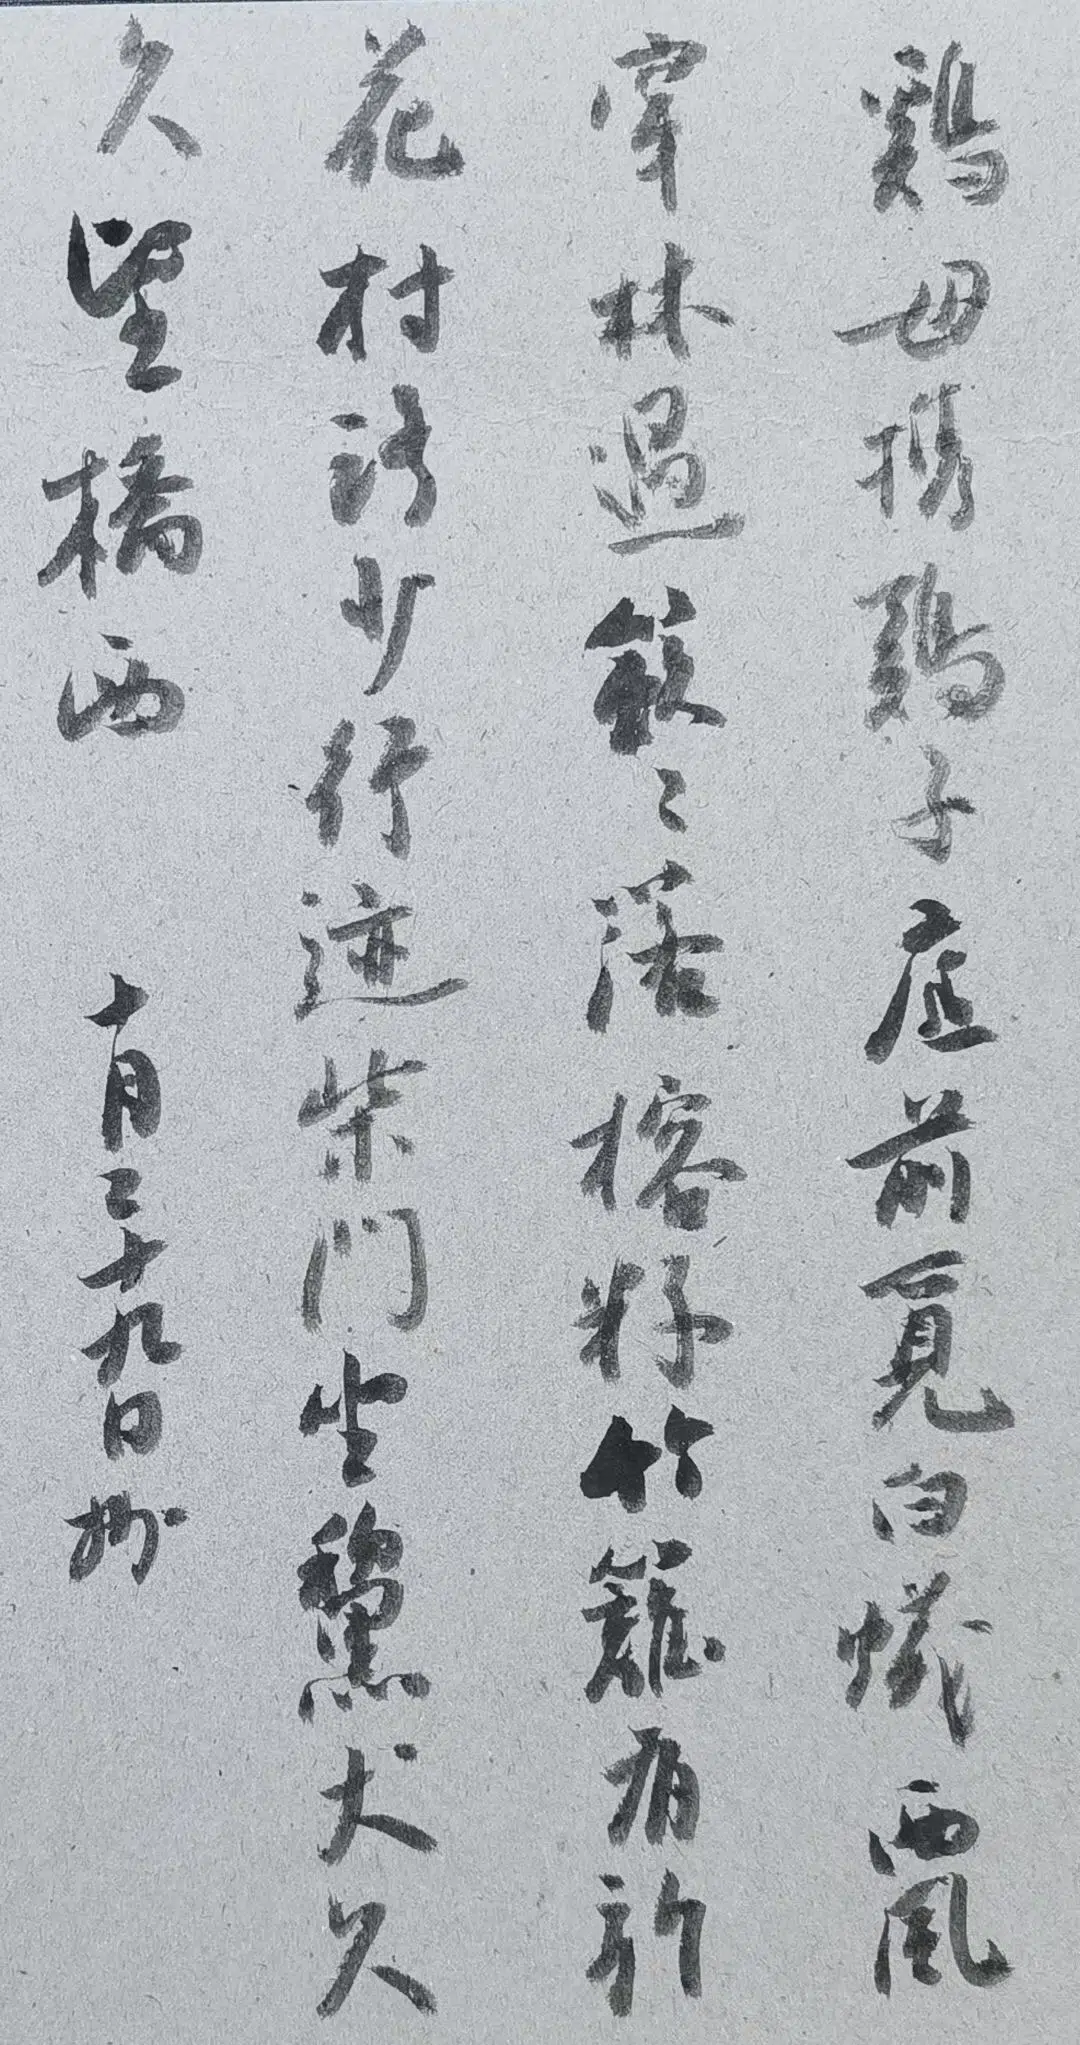 鷄母携鷄子庭前覓白蟻西風
穿林過簌々落榕籽竹籬有新
花村路少行迹柴門坐黧犬久
久望橋西 十月二十九日